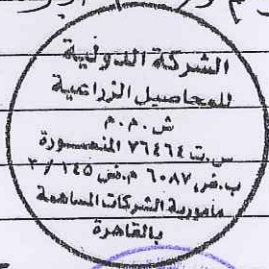 الشركة الدولية
للمحاصيل الزراعية
ش.م.م
س.ت ٧٦٤٦٤ المنصورة
ب.ض ٦٠٨٧ م.ض ١٤٥ / ٢
مأمورية الشركات المساهمة
بالقاهرة